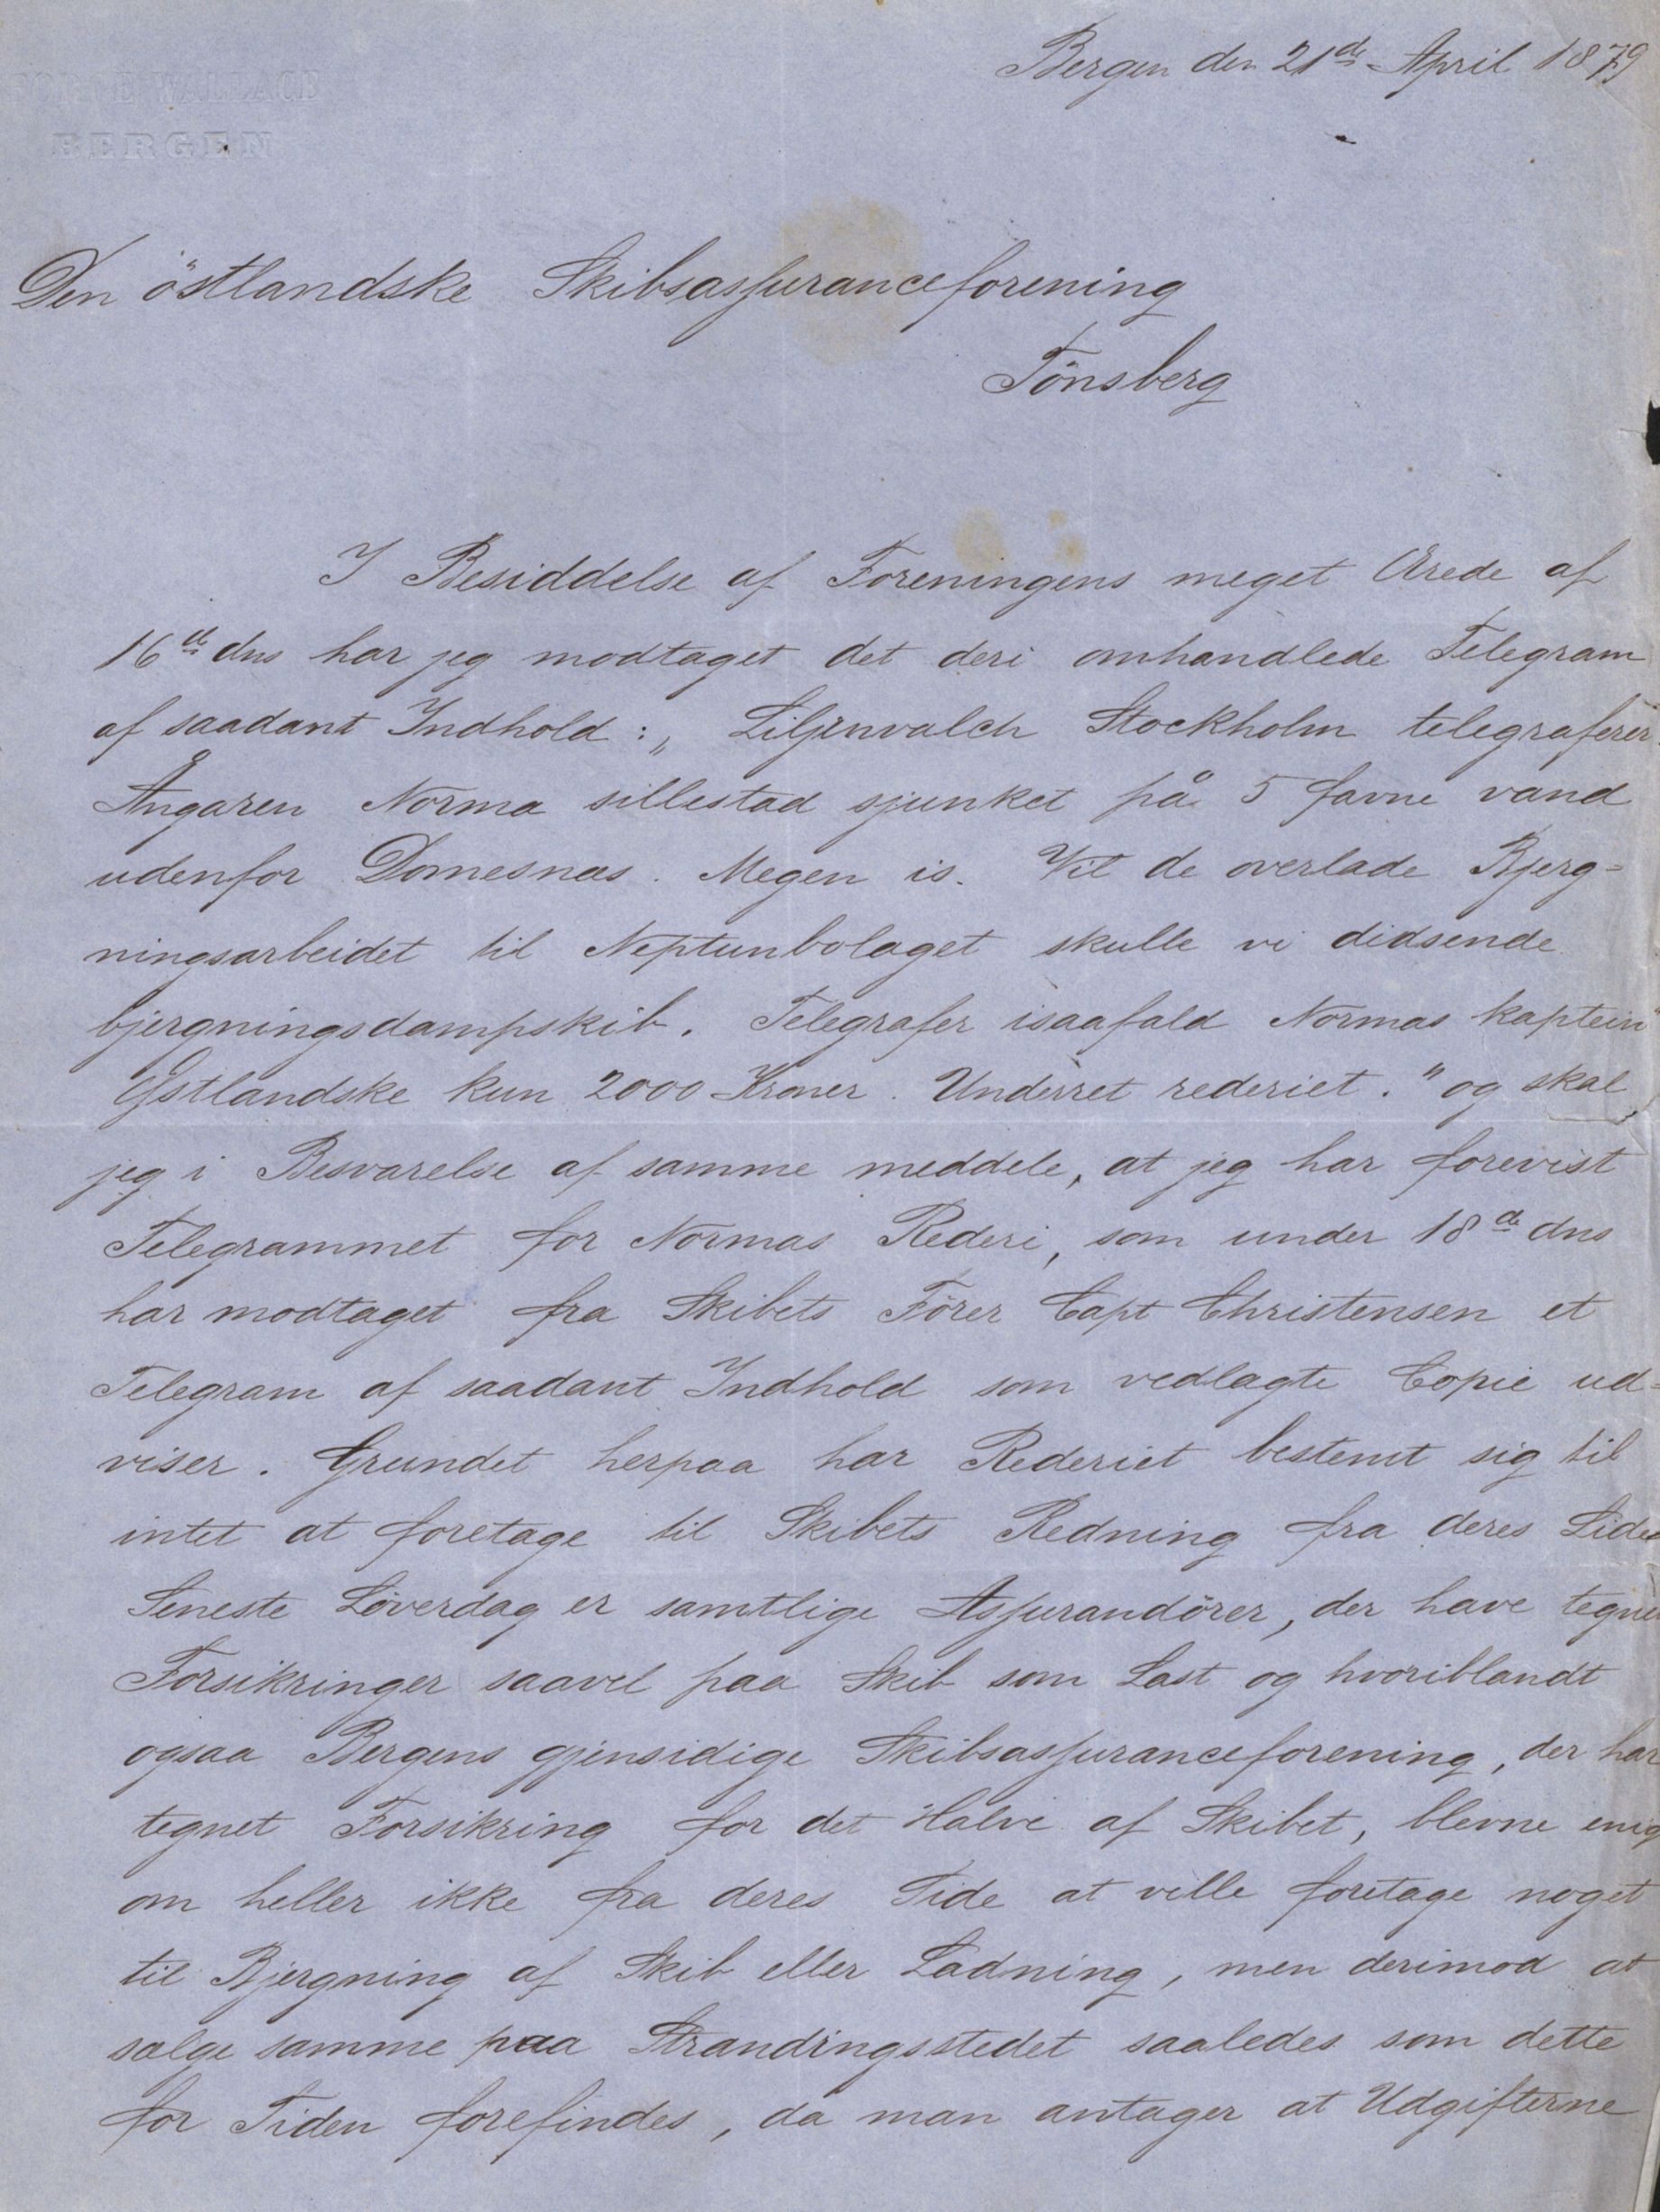 WALLACE
BERGEN
Bergen den 21de April 1879
Den östlandske Skibsassuranceforening
Tönsberg
I Besiddelse af Foreningens meget Ærede af
16de dns har jeg modtaget det deri omhandlede Telegram
af saadant Indhold: „ Liljenvalch Stockholm telegraferer
Ångaren Norma sillestad sjunket på 5 favne vand
udenfor Domesnæs. Megen is. Vil de overlade Bjerg=
ningsarbeidet til Neptunbolaget skulle vi didsende
bjergningsdampskib. Telegrafer isaafald Normas kaptein
Østlandske kun 2000 Kroner. Underret rederiet." og skal
jeg i Besvarelse af samme meddele, at jeg har forevist
Telegrammet for Normas Rederi, som under 18de dns
har modtaget fra Skibets Förer Capt Christensen et
Telegram af saadant Indhold som vedlagte Copie ud=
viser. Grundet herpaa har Rederiet bestemt sig til
intet at foretage til Skibets Redning fra deres Side
Seneste Löverdag er samtlige Assurandörer, der have tegnet
Forsikringer saavel paa Skib som Last og hvoriblandt
ogsaa Bergens gjensidige Skibsassuranceforening, der har
tegnet Forsikring for det Halve af Skibet, blevne enig
om heller ikke fra deres Side at ville foretage noget
til Bjergning af Skib eller Ladning, men derimod at
sælge samme paa Strandingsstedet saaledes som dette
for Tiden forefindes, da man antager at Udgifterne